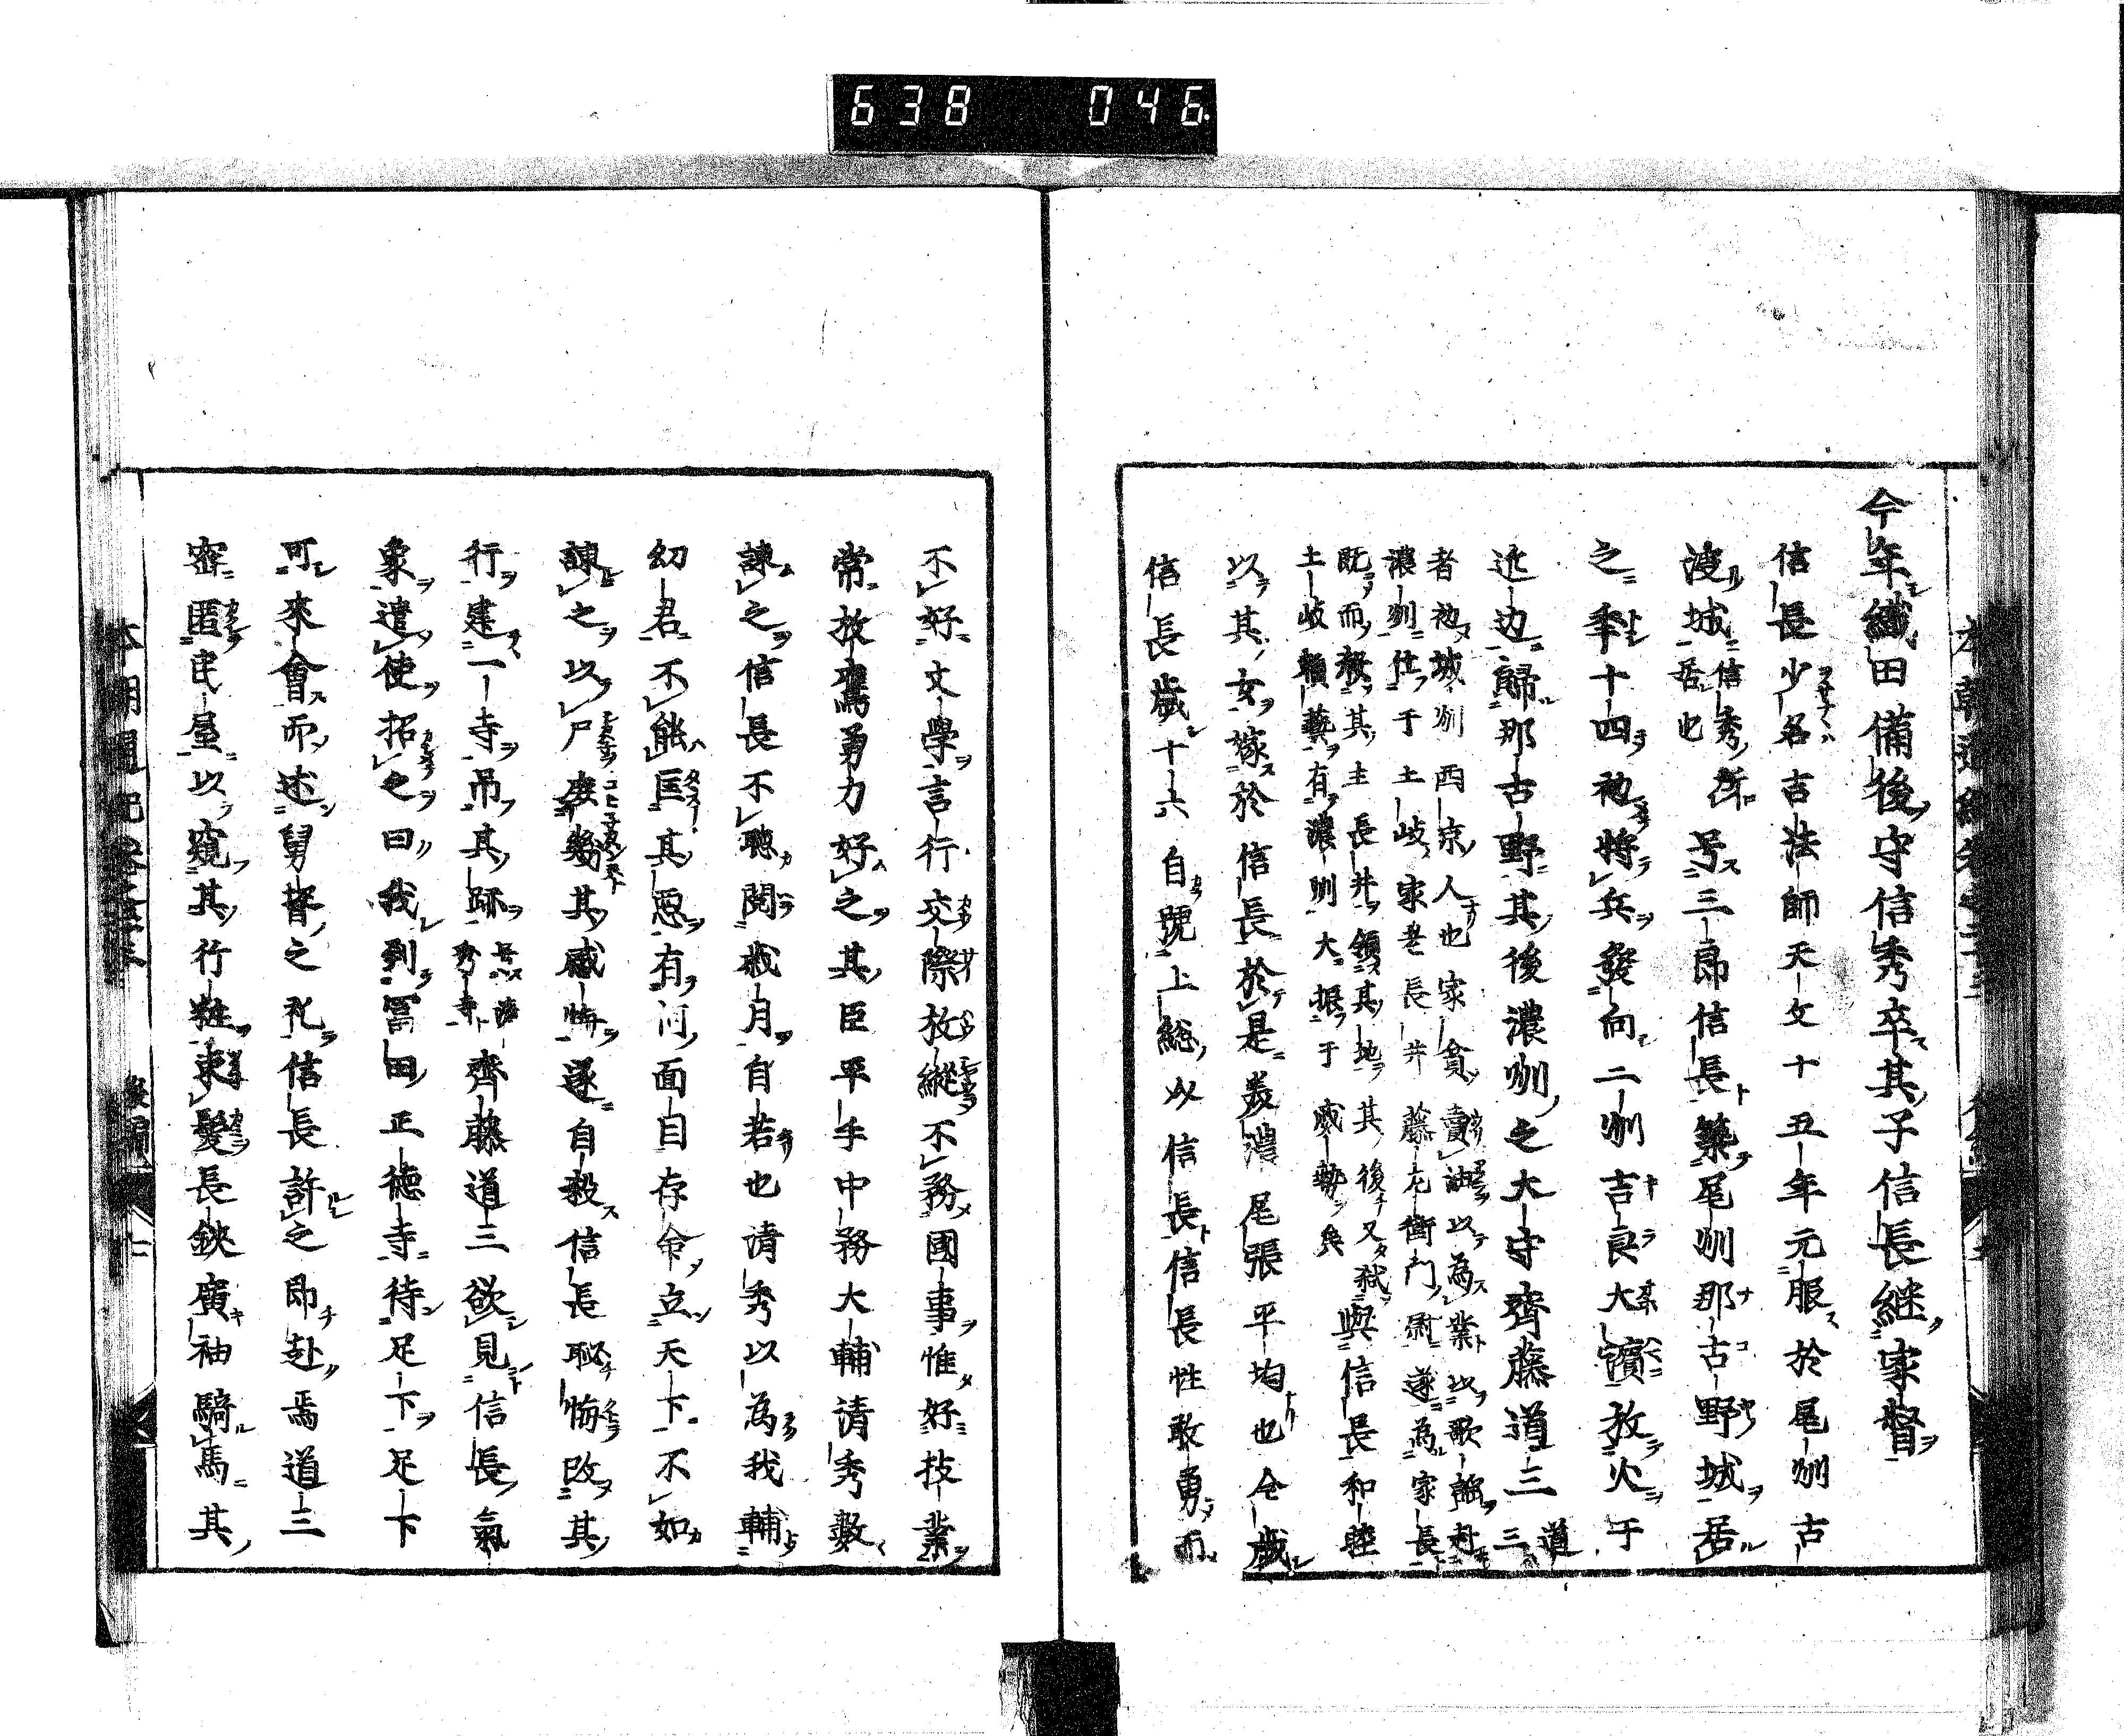 638 046
今年織田備後守信秀卒其子信長継家督
信長少名吉法師天文十五年元服於尾州古
渡城信秀所居也号三郎信長築尾州那古野城居
之年十四初将兵發向二州吉良大濵放火于
近边歸那古野其後濃州之大守齊藤道三道三
者初城州西京人也家貧賣油以為業以歌謡起
濃州仕于土岐家老長井藤左衛門尉遂為家長
既而殺其主長井領其地其後又弑
土岐頼藝有濃州大振于威勢矣與信長和睦
以其女嫁於信長於是美濃尾張平均也今歳
信長歳十六自號上総以信長信長性敢勇而
不好文學言行交際放縦不務國事惟好技業
常放鷹勇力好之其臣平手中務大輔清秀數
諌之信長不聴閲歳月自若也清秀以為我輔
幼君不能匡其悪有何面目存命立天下不如
諌之以尸庻幾其感悔遂自殺信長恥悔改其
行建一寺吊其跡号清秀寺齊藤道三欲見信長氣
象遣使招之曰我到冨田正徳寺待足下足下
可來會而述舅督之礼信長許之即赴焉道三
密匿民屋以窺其行粧束髪長鋏廣袖騎馬其